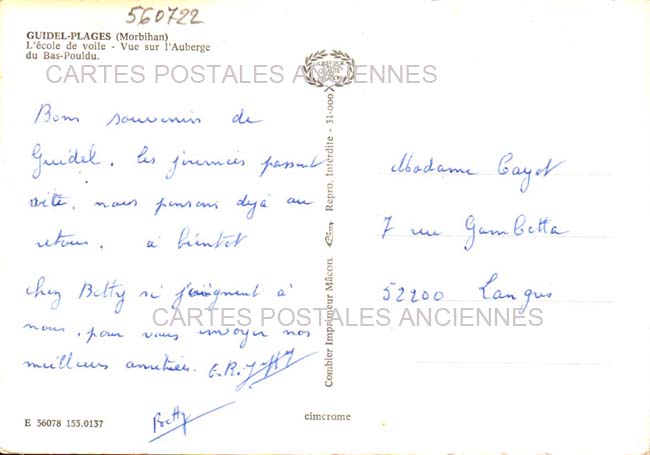 560722
GUIDEL-PLAGES (Morbihan)
L'école de voile - Vue sur l'Auberge
du Bas-Pouldu.
CARTES POSTALES ANCIENNES
Bons souvenirs de
Guidel. les journées passent
vite, nous pensons déjà au
retour. à bientôt
chez Betty se joignent à
nous, pour vous envoyer nos
meilleurs amitiés.
Betty
Madame Cayot
7 rue Gambetta
52200 Langres
CARTES POSTALES ANCIENNES
Combier Imprimeur Mâcon Repro. Interdite - 31-000
E 56078 155.0137
cimcrome